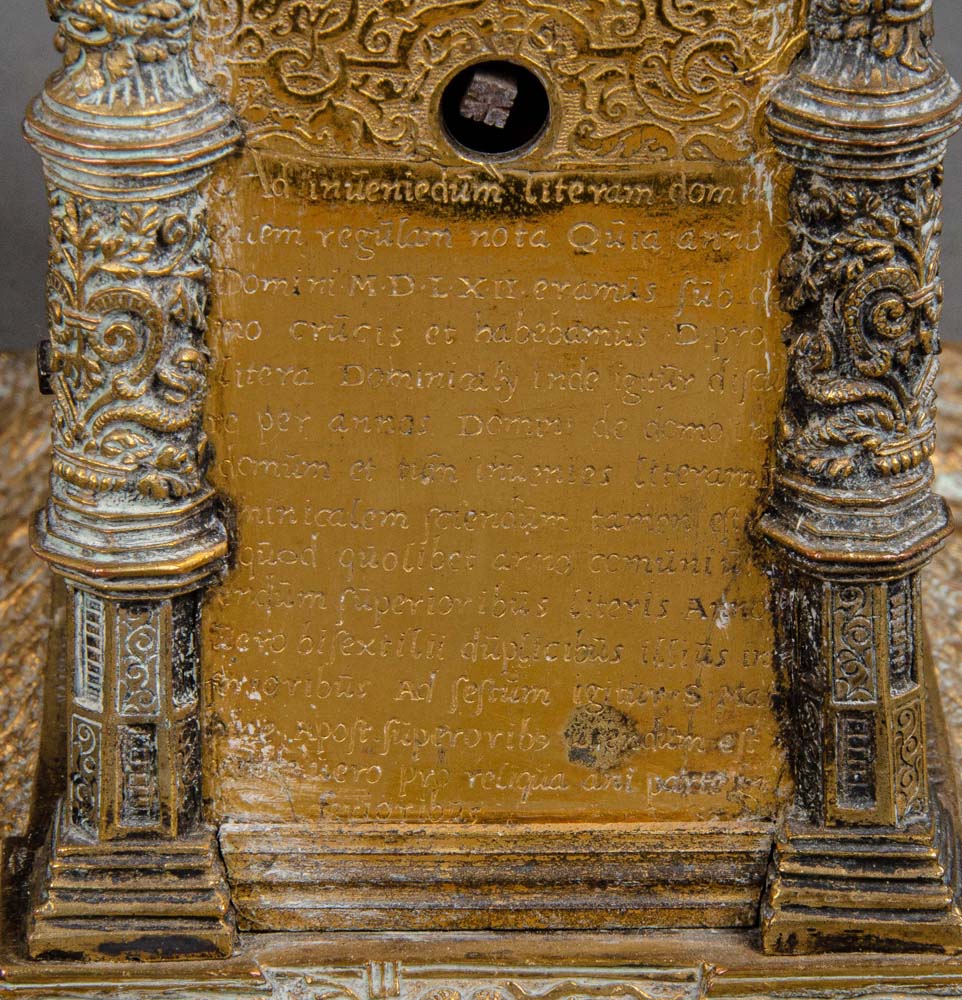 Ad inūeniedūm literam domi
calem regūlam nota Qūia anno
Domini M·D·LXII· eramūs ſūb
mo crūcis et habebamūs D. pro
litera Dominicali inde igitūr diſcū
re per annos Domini de domo
domūm et tūn inūenies literam
minicalem ſciendūm tamen eſt
qūod qūolibet anno comūni
ndūm ſūperioribūs literis Anno
ūero biſextili dūplicibūs illiūs in
ferioribūs Ad feſtūm igitūr S Ma
Apoſt. ſūperoribꝰ ūtendūm eſt
ūero pro reliqūa ani parte in
ferioribūs